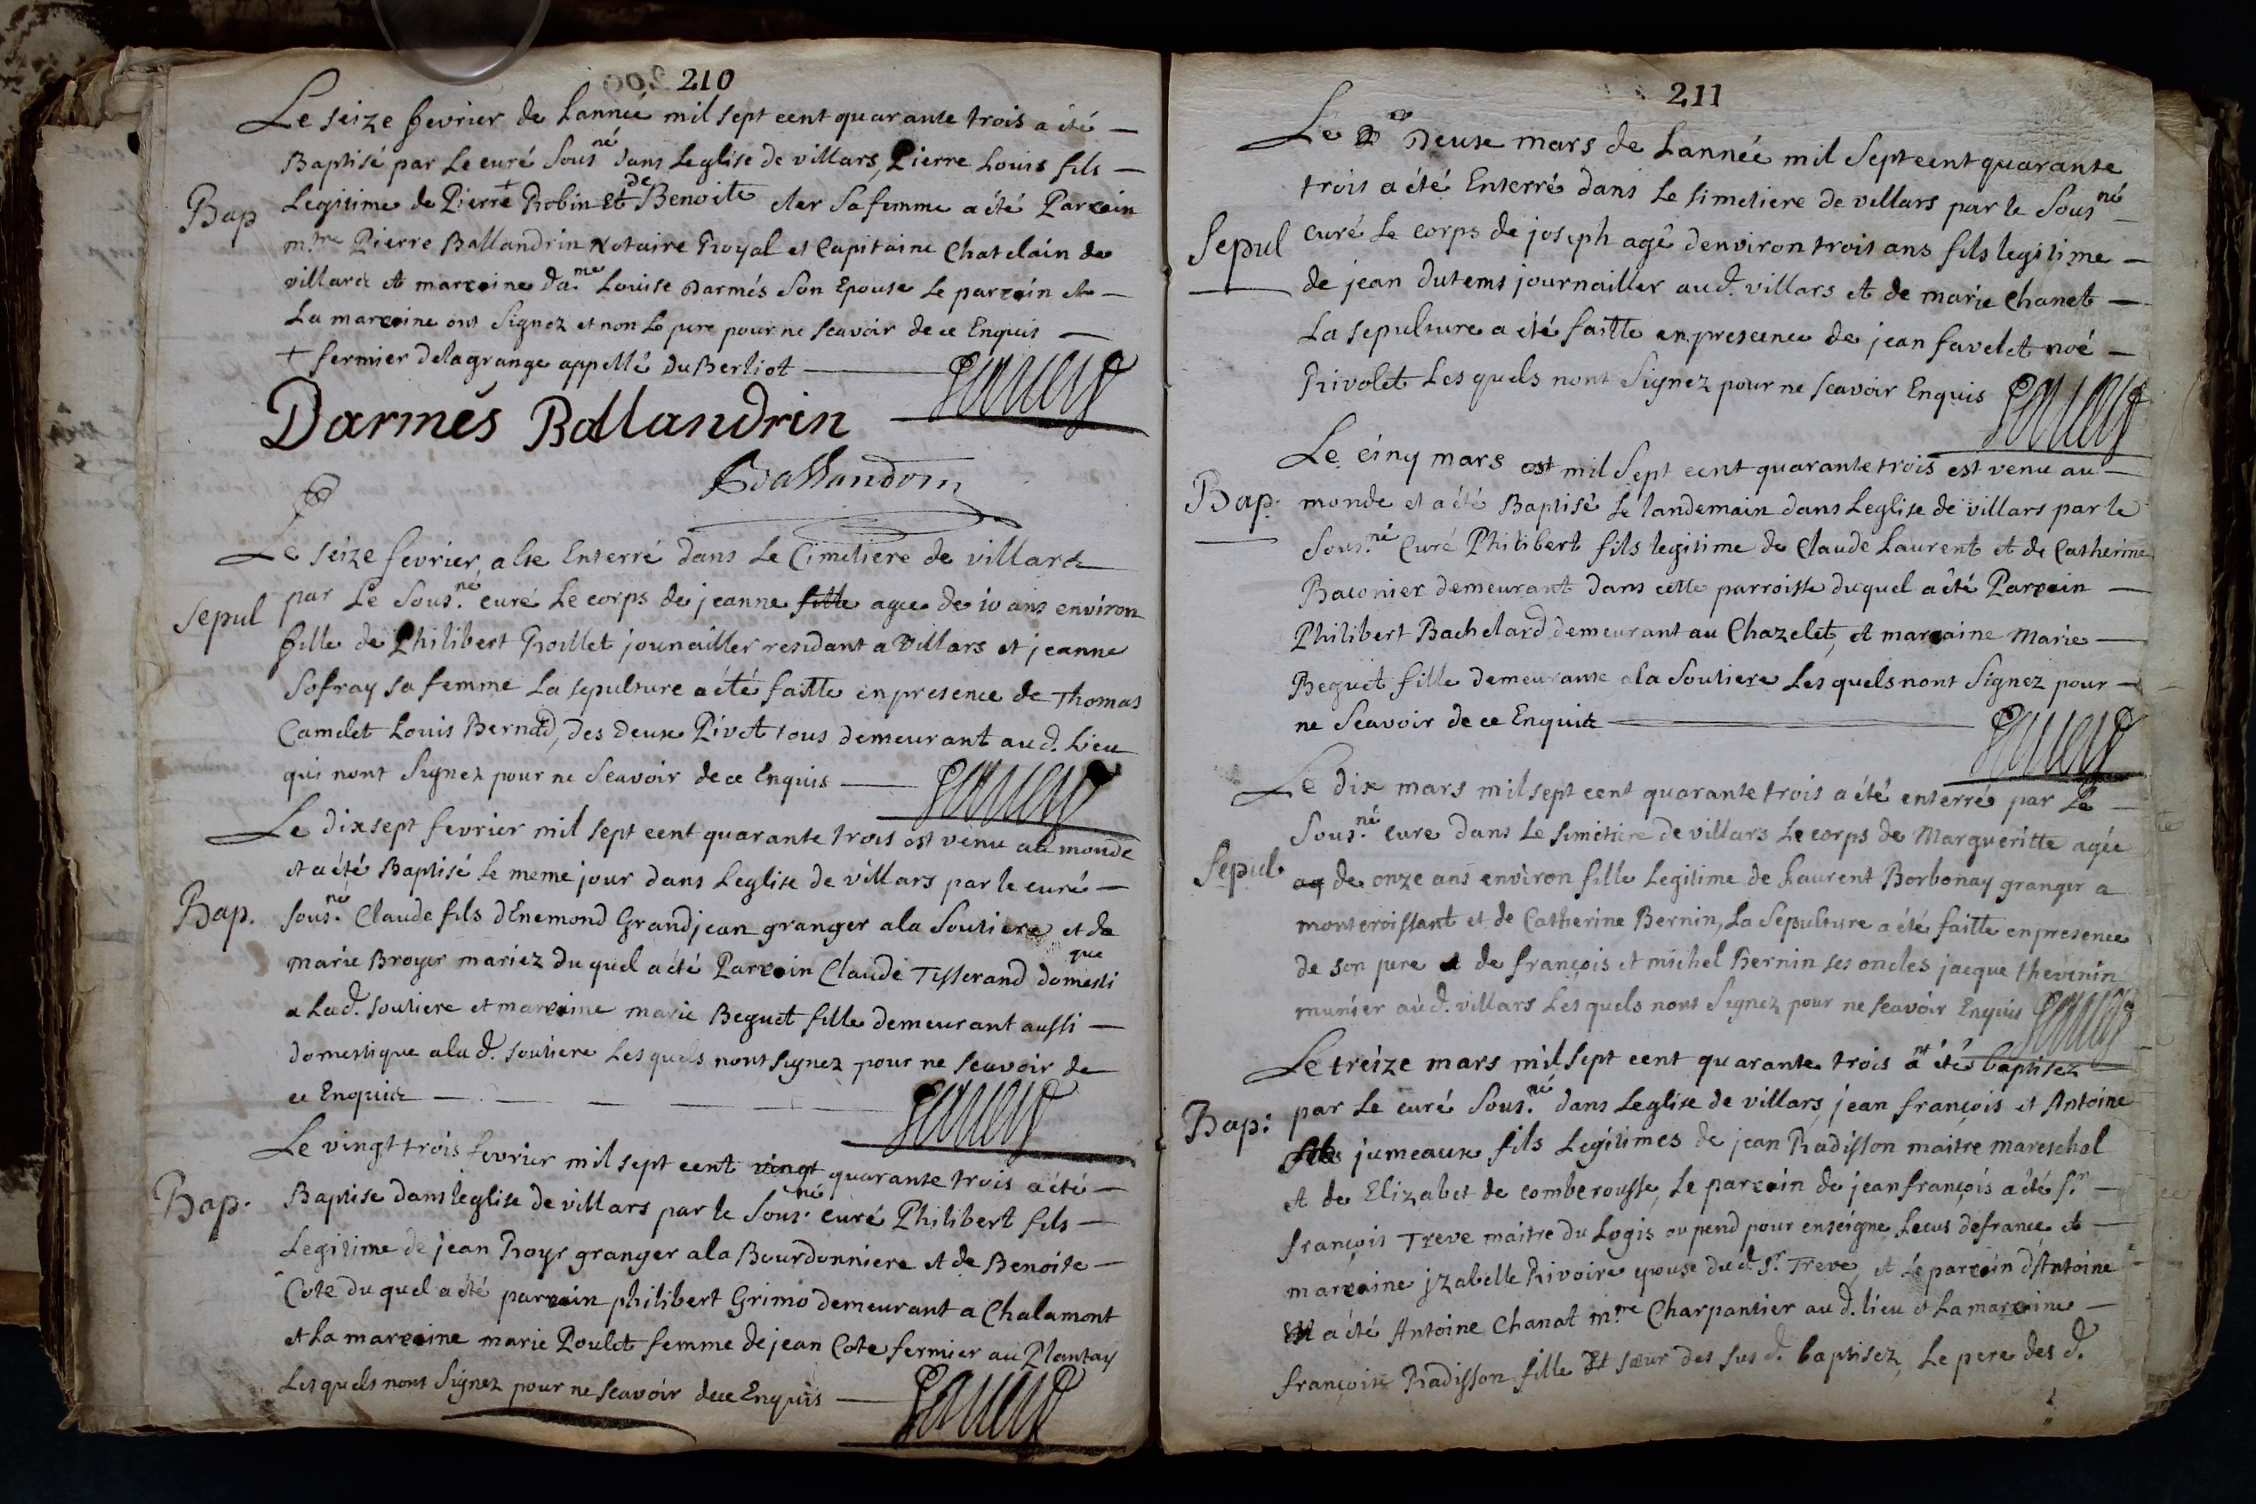 210
Le seize fevrier de Lannee mil sept cent quarante trois a été —
Baptisé par Le curé Sousné dans Leglise de villars, Pierre Louis fils —
Bap
Legitime de Pierre + Robin Et de Benoite sa femme a été Parrein
mtre Pierre Ballandrin Notaire Royal et Capitaine Chatelain de
villars et marreine dame Louise Darmés Son Epouse Le parrein et —
La marreine ont Signez et non Le pere pour ne scavoir de ce Enquis —
+ fermier delagrange appellé du Berliot —
Darmés Ballandrin
Ballandrin
Le seize fevrier a ete Enterré dans Le Cimetiere de villars
Sepul
par Le Sous.né curé Le corps de jeanne fille agee de 10 ans environ
fille de Philibert Roillet jounailler residant a Villars et jeanne
Sofray sa femme La sepulture a été faitte en presence de Thomas
Camelet Louis Bernard, des deux Pivet tous demeurant aud. Lieu
qui nont Signez pour ne Scavoir de ce Enquis —
Le dixsept fevrier mil sept cent quarante trois est venu au monde
et a été Baptisé Le meme jour dans Leglise de villars par le curé —
Bap.
Sous.né Claude fils dEnemond Grandjean granger a la Soutiere et de
marie Broyer mariez du quel a été Parrein Claude Tisserand domestique
a Lad. soutiere et marreine marie Beguet fille demeurant aussi —
domestique a la d. soutiere Les quels nont signez pour ne scavoir de
ce Enquis —
Le vingt trois fevrier mil sept cent vingt quarante trois a été —
Bap.
Baptise dans leglise de villars par le Sous.né curé Philibert fils —
Legitime de jean Royr granger a la Bourdonniere et de Benoite —
Cote du quel a été parrein philibert Grimo demeurant a Chalamont
et La marreine marie Poulet femme de jean Cote fermier au Plantay
Les quels nont Signez pour ne scavoir de ce Enquis —
211
Le Deuxe mars de Lanneé mil Sept cent quarante
trois a été Enterré dans Le simetiere de villars par le Sousné
Sepul
curé Le corps de joseph agé denviron trois ans fils legitime —
de jean dutems journailler aud. villars et de marie Chanet —
La sepulture a été faitte en presence de jean favel et noé —
Rivolet Les quels nont Signez pour ne scavoir Enquis
Le cinq mars est mil Sept cent quarante trois est venu au —
Bap.
monde et a été Baptisé Le landemain dans Leglise de villars par le
Sous.né Curé Philibert fils legitime de Claude Laurent et de Catherine
Baconier demeurant dans cette parroisse duquel a été Parrein —
Philibert Bachelard demeurant au Chazelet, et marraine Marie —
Beguet fille demeurante a la Soutiere Les quels nont Signez pour —
ne Scavoir de ce Enquis —
Le dix mars mil sept cent quarante trois a été enterré par Le —
Sous.né cure dans Le simetiere de villars Le corps de Margueritte agée
Sepul
ag de onze ans environ fille Legitime de Laurent Borbonay granger a
montcroissant et de Catherine Bernin, La Sepulture a été faitte en presence
de son pere et de françois et michel Bernin ses oncles jacque thevenin
munier aud. villars Les quels nont Signez pour ne scavoir Enquis
Le treize mars mil sept cent quarante trois ant étés baptisez
Bap:
par Le curé Sous.né dans Leglise de villars jean françois et Antoine
fils jumeaux fils Legitimes de jean Radisson maitre mareschal
et de Elizabet de comberousse, Le parrein de jean françois a été sr —
françois Treve maitre du Logis ou pend pour enseigne Lecus de france et —
marraine jzabelle Rivoire epouse dud. Sr. Treve, et Le parrein dAntoine
a été Antoine Chanat m.re Charpantier au d. lieu et La marraine —
françoise Radisson fille et sœur des sus d. baptisez, Le pere des d.